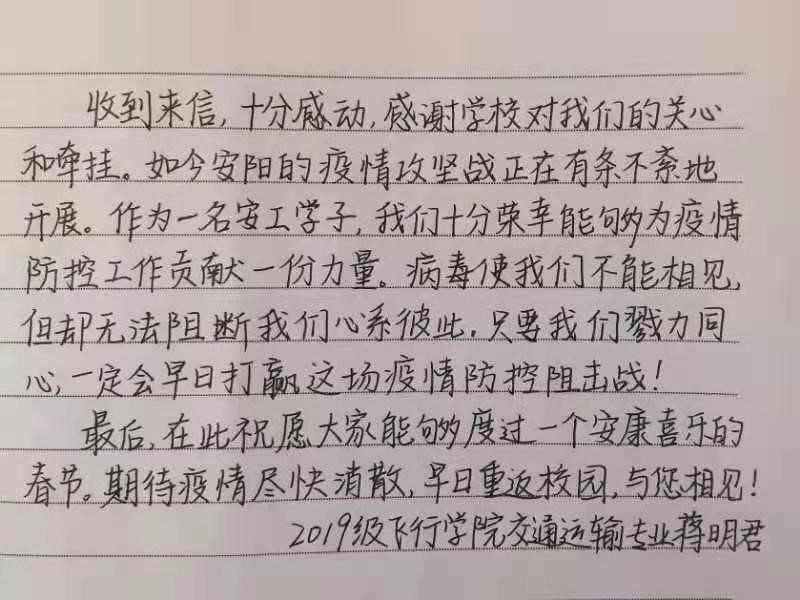 收到来信,十分感动,感谢学校对我们的关心
和牵挂。如今安阳的疫情攻坚战正在有条不紊地
开展。作为一名安工学子,我们十分荣幸能够为疫情
防控工作贡献一份力量。病毒使我们不能相见,
但却无法阻断我们心系彼此.只要我们戮力同
心,一定会早日打赢这场疫情防控阻击战!
最后,在此祝愿大家能够度过一个安康喜乐的
春节。期待疫情尽快消散,早日重返校园,与您相见!
2019级飞行学院交通运输专业蒋明君